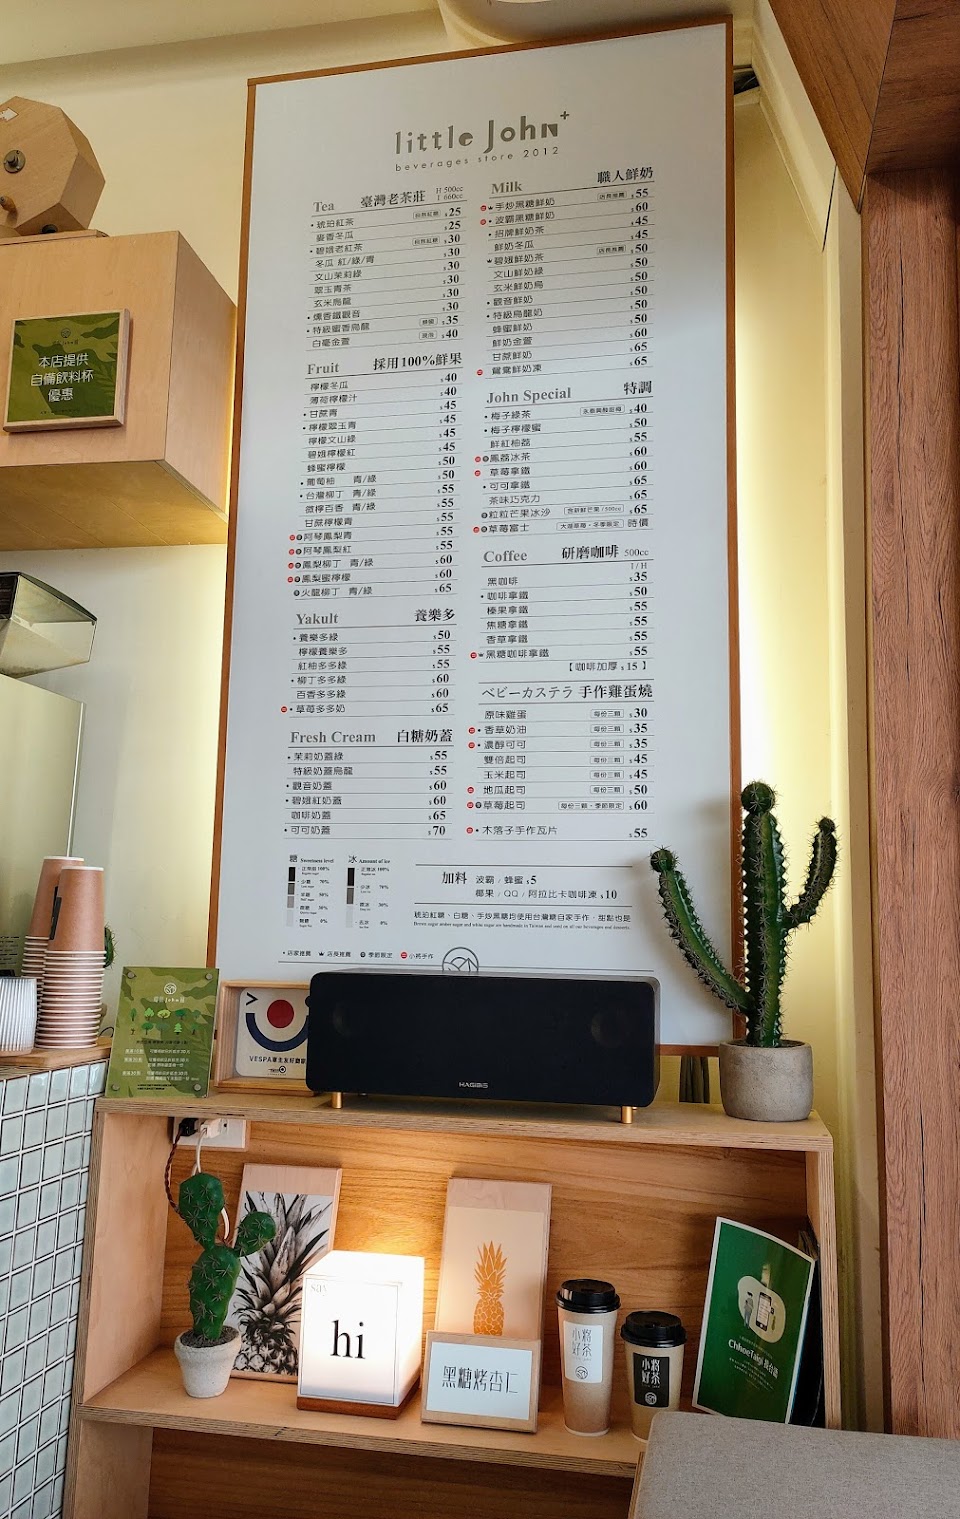 little John+
beverages store 2012
Tea 臺灣老茶莊 H 500cc
I 660cc
• 琥珀紅茶 自然紅糖 $25
麥香冬瓜 $25
• 碧娥老紅茶 自然紅糖 $30
冬瓜 紅/綠/青 $30
文山茉莉綠 $30
翠玉青茶 $30
玄米烏龍 $30
• 燻香鐵觀音 $30
• 特級蜜香烏龍 $35
白毫金萱 $40
Fruit 採用100%鮮果
檸檬冬瓜 $40
薄荷檸檬汁 $40
• 甘蔗青 $45
• 檸檬翠玉青 $45
檸檬文山綠 $45
碧娥檸檬紅 $45
蜂蜜檸檬 $50
• 葡萄柚 青/綠 $50
• 台灣柳丁 青/綠 $55
微檸百香 青/綠 $55
甘蔗檸檬青 $55
阿琴鳳梨青 $55
阿琴鳳梨紅 $55
鳳梨柳丁 青/綠 $60
鳳梨蜜檸檬 $60
火龍柳丁 青/綠 $65
Yakult 養樂多
• 養樂多綠 $50
檸檬養樂多 $55
紅柚多多綠 $55
• 柳丁多多綠 $60
百香多多綠 $60
• 草莓多多奶 $65
Fresh Cream 白糖奶蓋
• 茉莉奶蓋綠 $55
特級奶蓋烏龍 $55
• 觀音奶蓋 $60
• 碧娥紅奶蓋 $60
咖啡奶蓋 $65
• 可可奶蓋 $70
Milk 職人鮮奶
手炒黑糖鮮奶 店長推薦 $55
• 波霸黑糖鮮奶 $60
• 招牌鮮奶茶 $45
鮮奶冬瓜 $45
碧娥鮮奶茶 店長推薦 $50
文山鮮奶綠 $50
玄米鮮奶烏 $50
• 觀音鮮奶 $50
• 特級烏龍奶 $50
蜂蜜鮮奶 $50
鮮奶金萱 $60
甘蔗鮮奶 $65
鴛鴦鮮奶凍 $65
John Special 特調
• 梅子綠茶 $40
• 梅子檸檬蜜 $50
鮮紅柚荔 $55
鳳荔冰茶 $60
草莓拿鐵 $60
• 可可拿鐵 $65
茶味巧克力 $65
粒粒芒果冰沙 含新鮮芒果/500cc $65
草莓富士 大湖草莓・冬季限定 時價
Coffee 研磨咖啡 500cc
I / H
黑咖啡 $35
• 咖啡拿鐵 $50
榛果拿鐵 $55
焦糖拿鐵 $55
香草拿鐵 $55
黑糖咖啡拿鐵 $55
【咖啡加厚 $15 】
ベビーカステラ 手作雞蛋燒
原味雞蛋 每份三顆 $30
• 香草奶油 每份三顆 $35
• 濃醇可可 每份三顆 $35
雙倍起司 每份三顆 $45
玉米起司 每份三顆 $45
地瓜起司 每份三顆 $50
草莓起司 每份三顆・季節限定 $60
• 木落子手作瓦片 $55
糖 Sweetness level
正常甜 100%
少糖 70%
半糖 50%
微糖 30%
無糖 0%
冰 Amount of ice
正常冰 100%
少冰 70%
微冰 30%
去冰 0%
加料 波霸 / 蜂蜜 $5
椰果 / QQ / 阿拉比卡咖啡凍 $10
琥珀紅糖、白糖、手炒黑糖均使用台灣糖自家手作，甜點也是
• 店家推薦 店長推薦 季節限定 小將手作
本店提供
自備飲料杯
優惠
VESPA車主友好商家
HAGIBIS
say
hi
黑糖烤杏仁
小將
好茶
小將
好茶
ChhoeTaigi 找台語